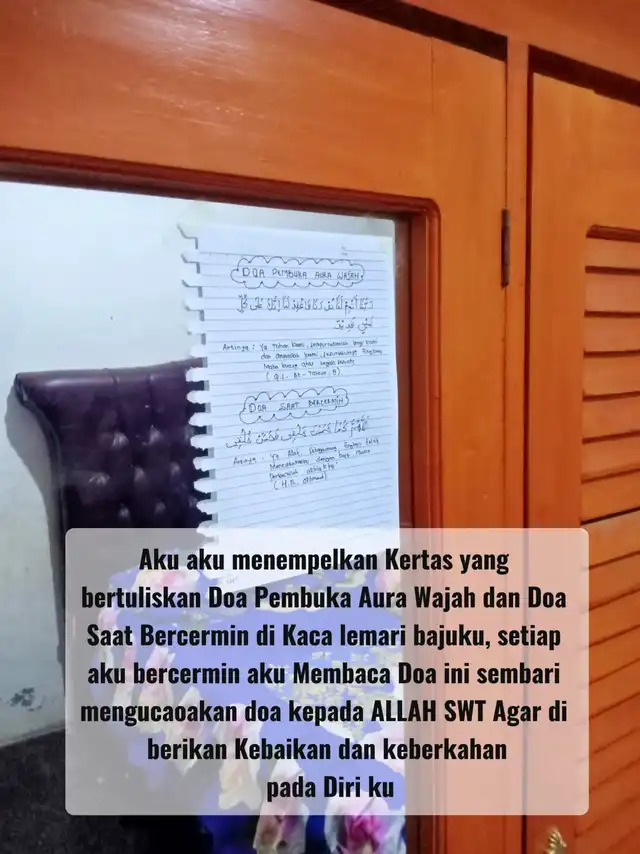 DOA PEMBUKA AURA WAJAH
Artinya : Ya Tuhan kami, sempurnakanlah bagi kami
dan ampunilah kami, sesungguhnya Engkau
Maha kuasa atas segala sesuatu
(Q.S. At-Tahrim, 8)
DOA SAAT BERCERMIN
Artinya : Ya Allah, Engkau telah
dengan baik, maka
(H.R. Ahmad)
Aku aku menempelkan Kertas yang
bertuliskan Doa Pembuka Aura Wajah dan Doa
Saat Bercermin di Kaca lemari bajuku, setiap
aku bercermin aku Membaca Doa ini sembari
mengucaoakan doa kepada ALLAH SWT Agar di
berikan Kebaikan dan keberkahan
pada Diri ku